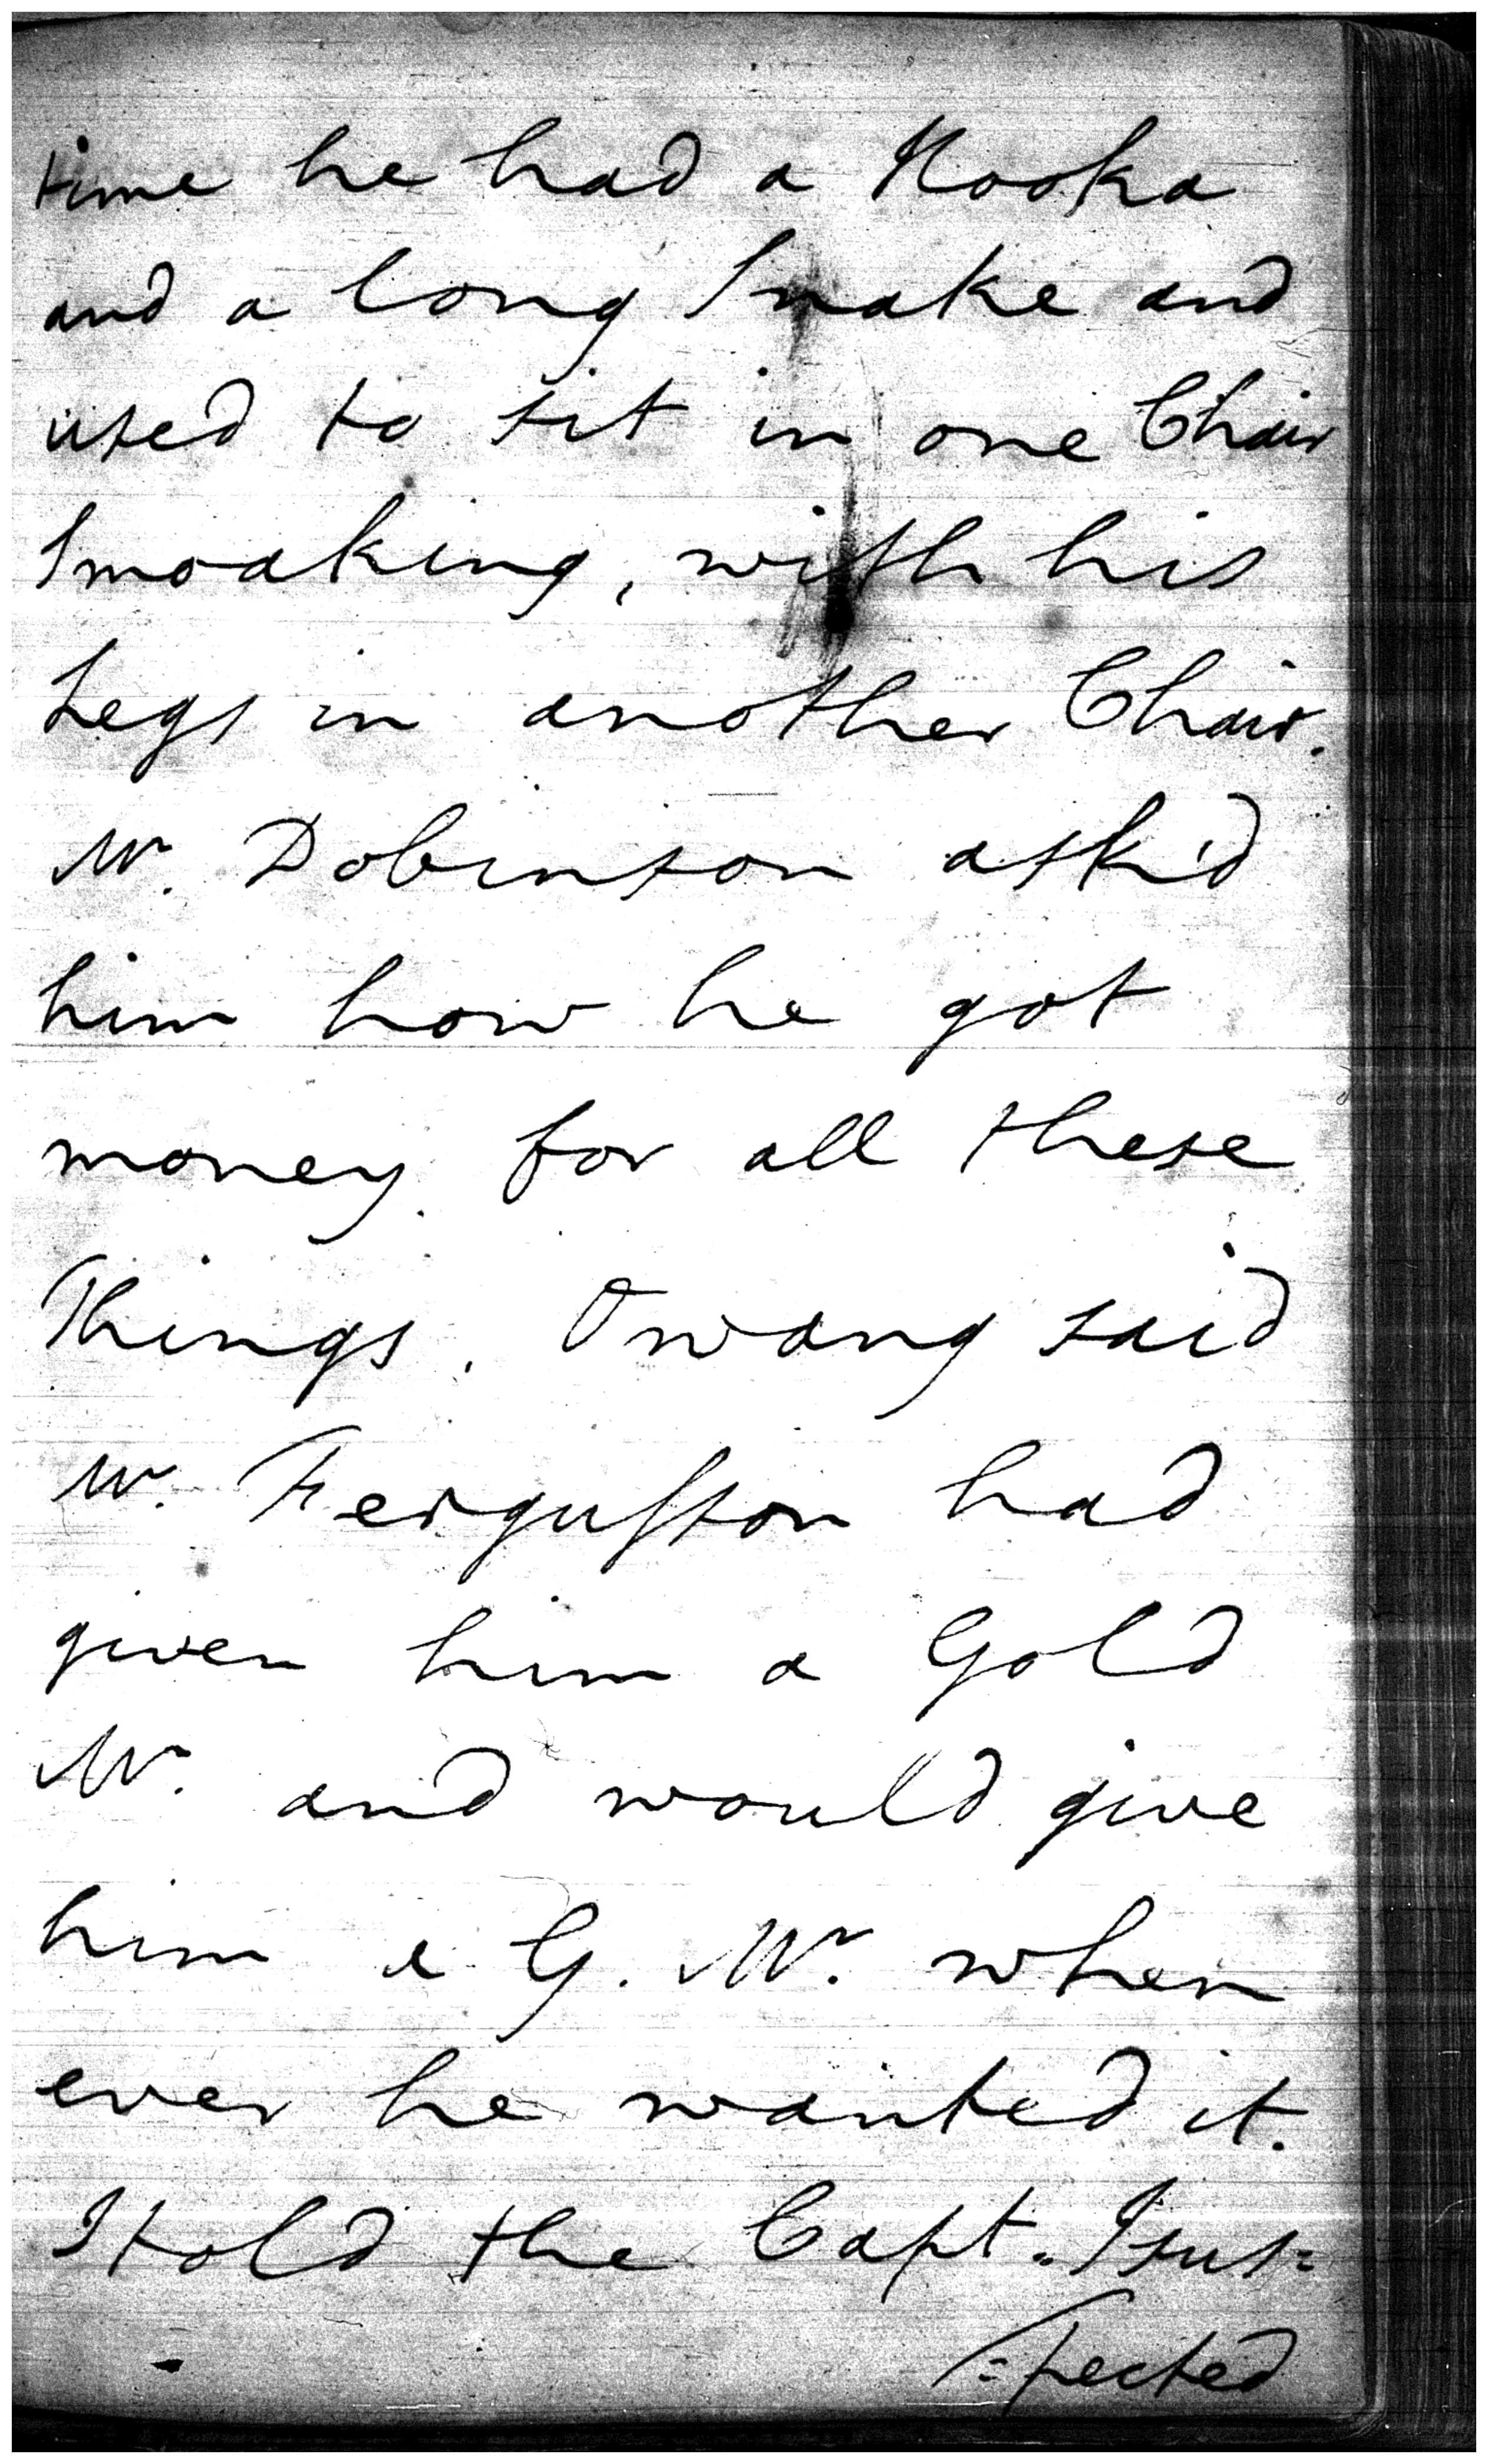 time he had a Hooka
and a long Snake and
used to sit in one Chair
Smoaking, with his
Legs in another Chair.
Mr. Dobinson ask'd
him how he got
money for all these
Things. Owang said
Mr. Fergusson had
given him a Gold
Mr. and would give
him a G. Mr. when
ever he wanted it.
I told the Capt. I sus=
=pected